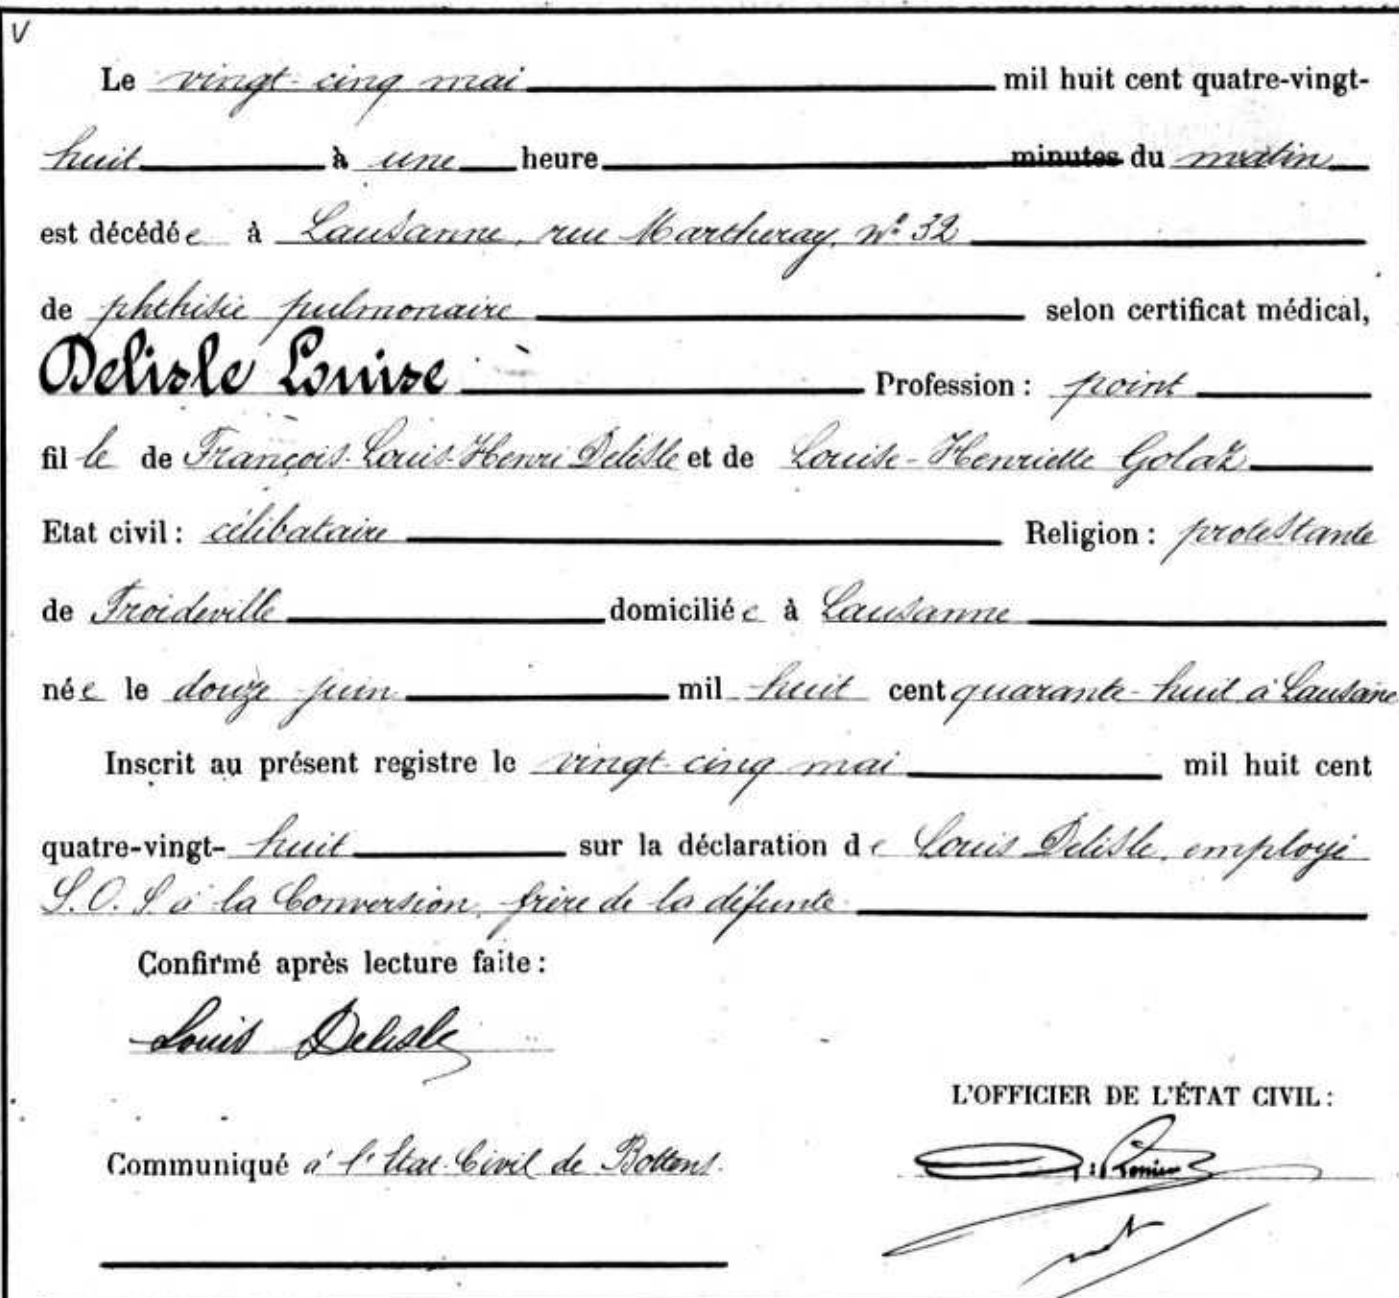 V
Le vingt-cinq mai mil huit cent quatre-vingt-
huit à une heure minutes du matin
est décédée à Lausanne, rue Martheray, nº 32
de phthisie pulmonaire selon certificat médical,
Delisle Louise Profession : point
fille de François-Louis-Henri Delisle et de Louise-Henriette Golaz
Etat civil : célibataire Religion : protestante
de Froideville domiciliée à Lausanne
née le douze juin mil huit cent quarante-huit à Lausanne
Inscrit au présent registre le vingt-cinq mai mil huit cent
quatre-vingt-huit sur la déclaration de Louis Delisle, employé
S. O. S. à la Conversion, frère de la défunte
Confirmé après lecture faite :
Louis Delisle
L'OFFICIER DE L'ÉTAT CIVIL :
Communiqué à l'Etat-Civil de Bottens.